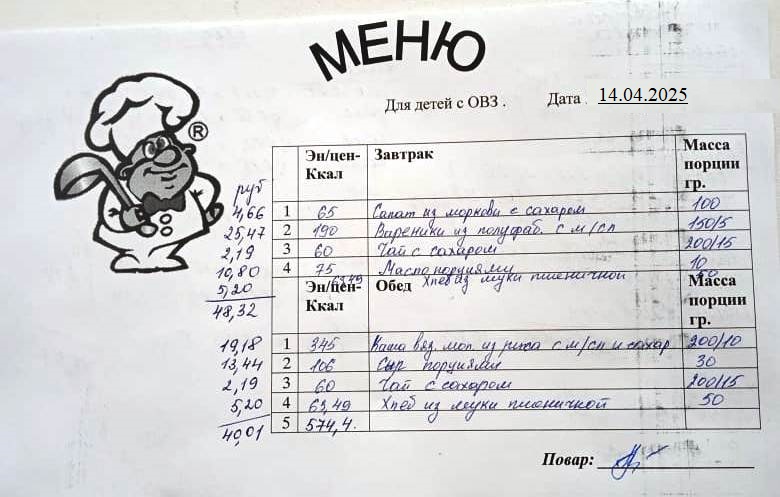 МЕНЮ
Для детей с ОВЗ . Дата . 14.04.2025
®
Эн/цен-Ккал Завтрак Масса порции гр.
руб
4,66 1 65 Салат из моркови с сахаром 100
25,47 2 190 Вареники из полуфаб. с м/сл 150/5
2,19 3 60 Чай с сахаром 200/15
10,80 4 75 Масло порциями 10
5,20 63,49 Хлеб из муки пшеничной 50
48,32
Эн/цен-Ккал Обед Масса порции гр.
19,18 1 345 Каша вяз. мол. из риса с м/сл и сахар 200/10
13,44 2 106 Сыр порциями 30
2,19 3 60 Чай с сахаром 200/15
5,20 4 63,49 Хлеб из муки пшеничной 50
40,01 5 574,4.
Повар: